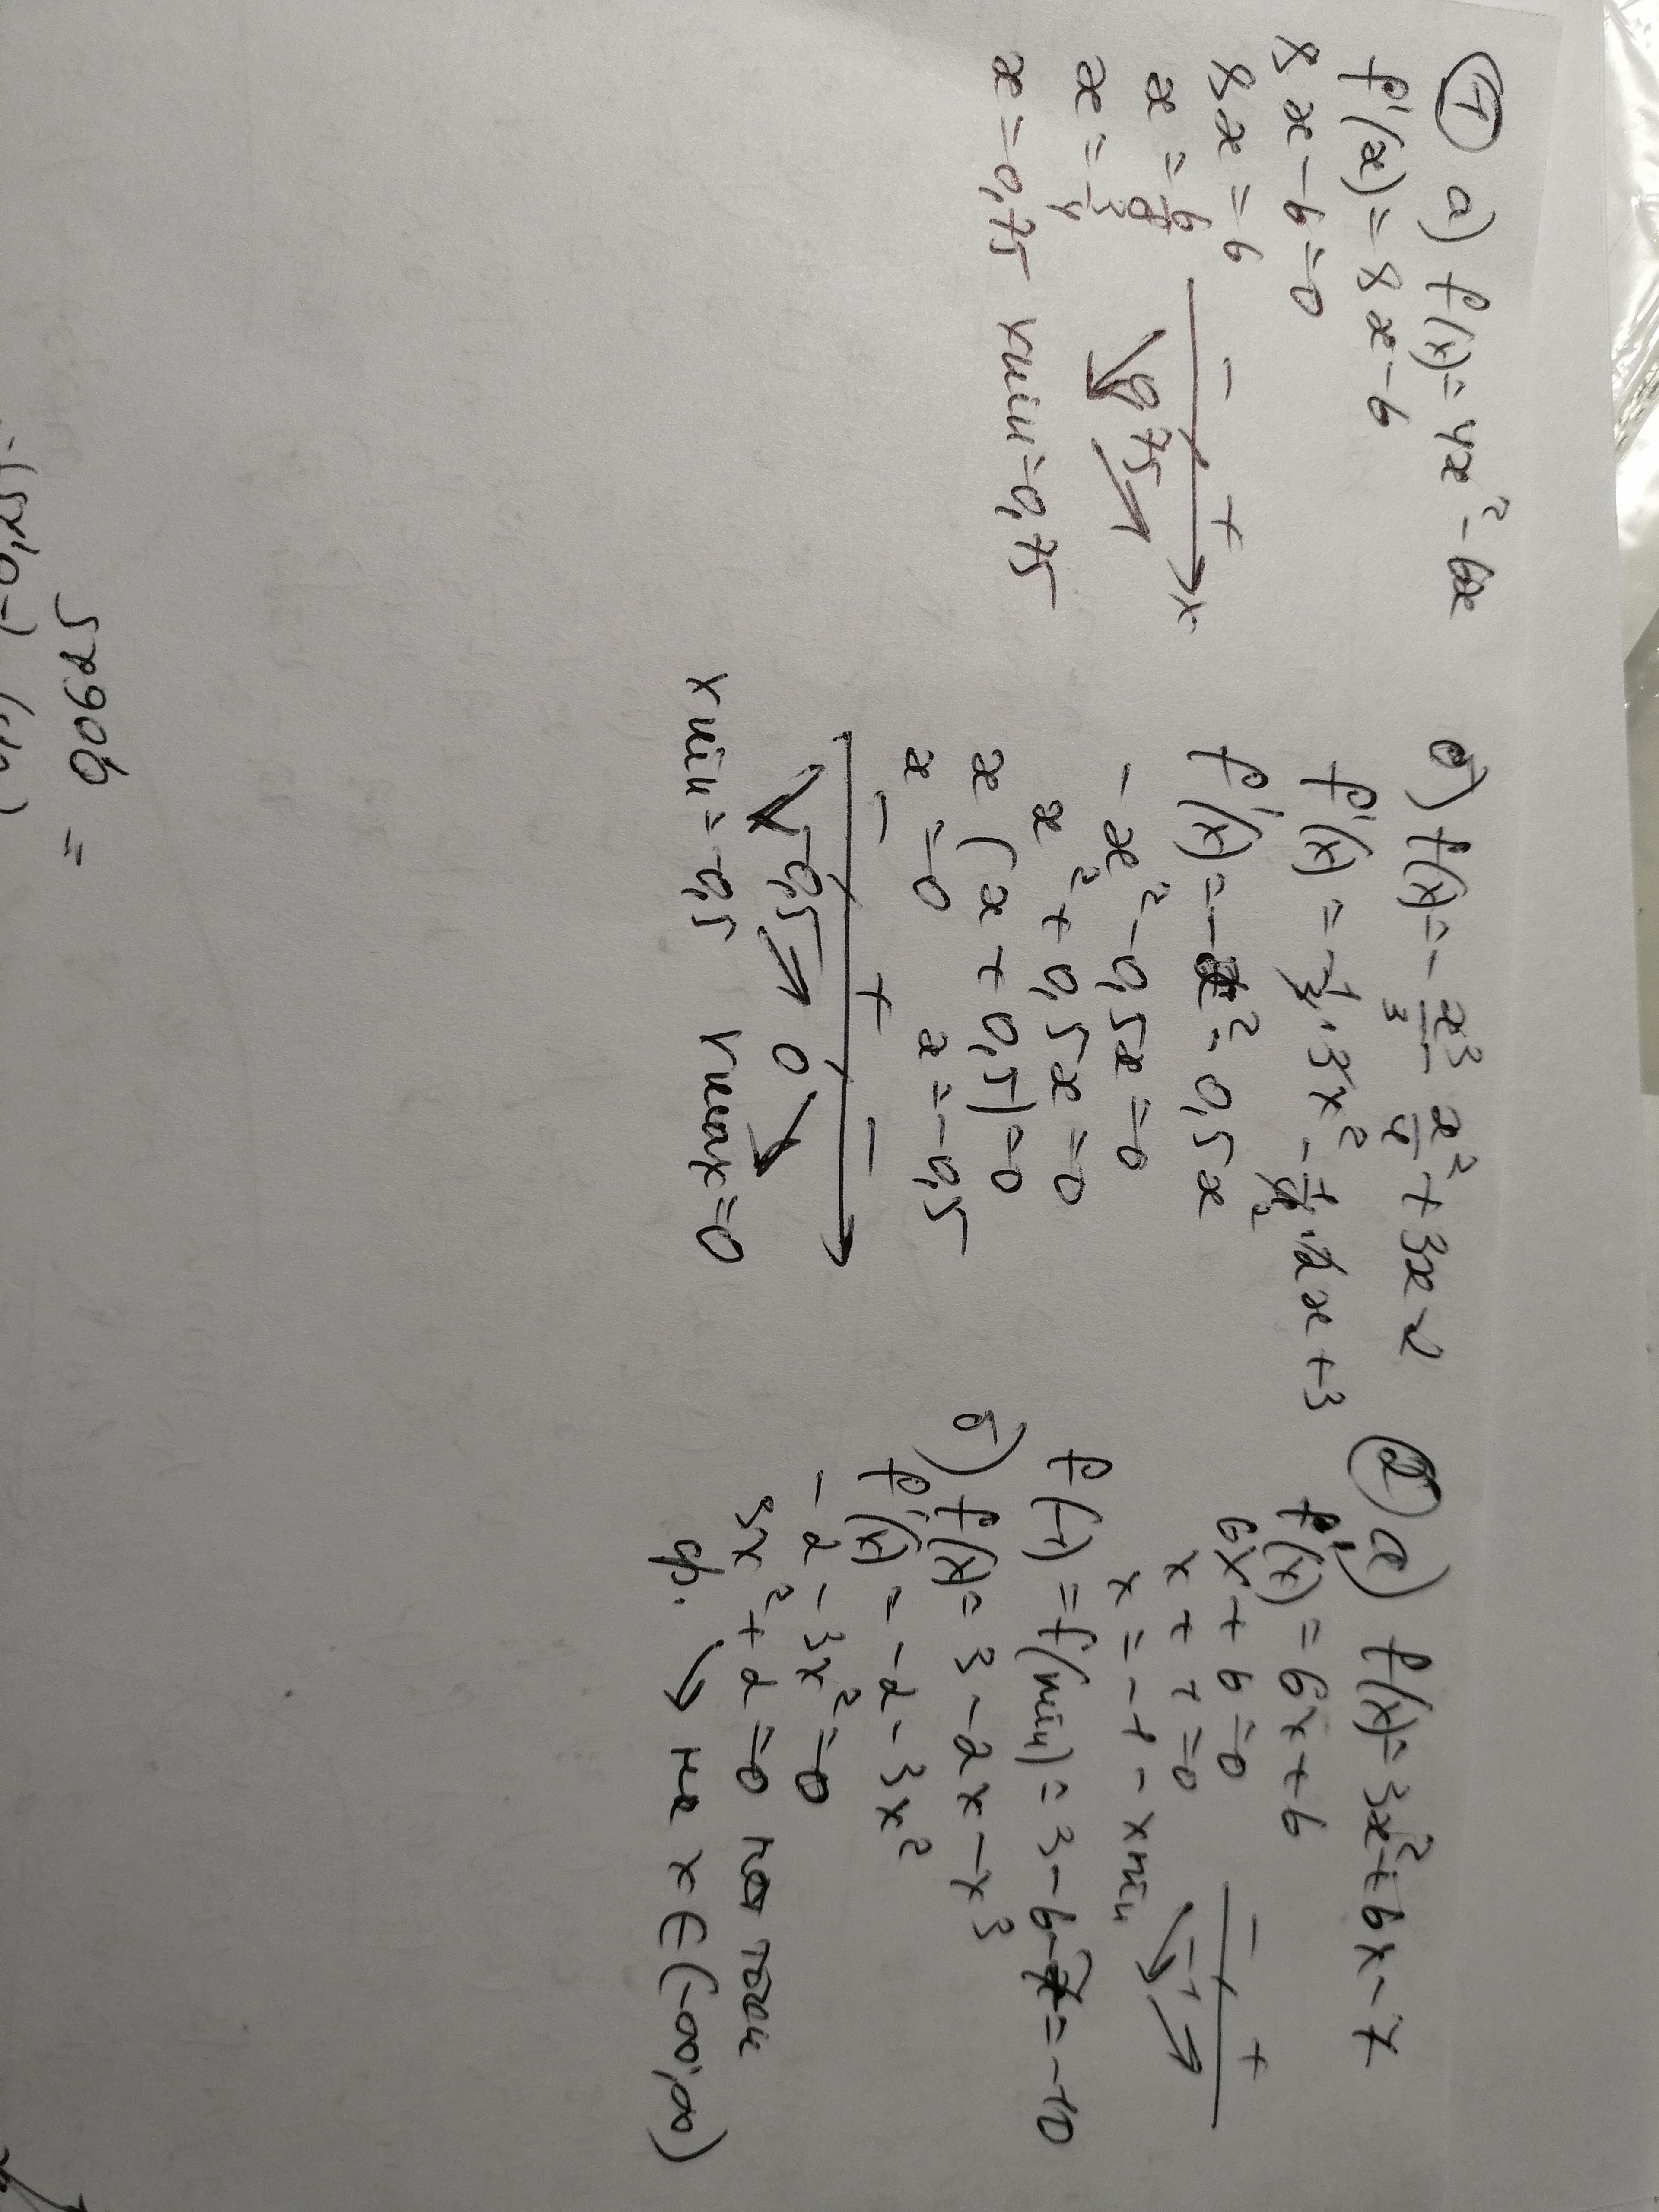 ① a) f(x) = 4x² - 6x
f'(x) = 8x - 6
8x - 6 = 0
8x = 6
x = 6/8
x = 3/4
x = 0,75
- + x
0,75
xmin = 0,75
б) f(x) = - x³/3 x²/4 + 3x - 2
f'(x) = - 1/3 · 3x² - 1/4 · 2x + 3
f'(x) = - x² - 0,5x
- x² - 0,5x = 0
x² + 0,5x = 0
x (x + 0,5) = 0
x = 0 x = -0,5
- + -
-0,5 0
xmin = -0,5 xmax = 0
② a) f(x) = 3x² + 6x - 7
f'(x) = 6x + 6
6x + 6 = 0
x + 1 = 0
x = -1 - xmin
- +
-1
f(-1) = f(min) = 3 - 6 - 7 = -10
б) f(x) = 3 - 2x - x³
f'(x) = -2 - 3x²
-2 - 3x² = 0
3x² + 2 = 0 нет точек
ф. ↘ на x ∈ (-∞; ∞)
(-0,25)
= 0,0625